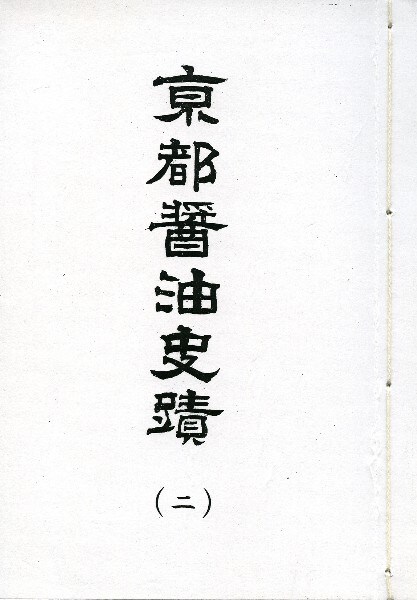 京都醤油史蹟
(二)